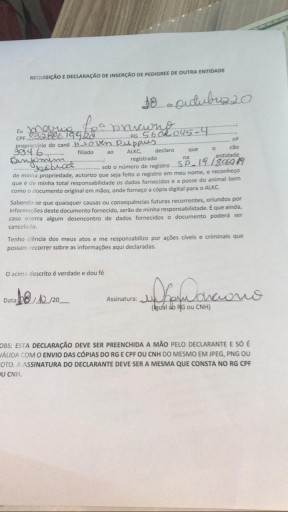 REQUISIÇÃO E DECLARAÇÃO DE INSERÇÃO DE PEDIGREE DE OUTRA ENTIDADE
18 outubro 20
Eu
CPF RG 5604045-4 nº
proprietário do canil
3346 filiado ao ALKC, declaro que o cão
Benjamim registrado na entidade
sob o número de registro SP-19/
de minha propriedade, autorizo que seja feito o registro em meu nome, e reconheço
que é de minha total responsabilidade os dados fornecidos e a posse do animal bem
como o documento original em mãos, onde forneço a cópia digital para o ALKC.
Sabendo-se que quaisquer causas ou consequências futuras recorrentes, oriundos por
informações deste documento fornecido, serão de minha responsabilidade. E que ainda,
caso ocorra algum desencontro de dados fornecidos o documento poderá ser
cancelado.
Tenho ciência dos meus atos e me responsabilizo por ações cíveis e criminais que
possam recorrer sobre as informações aqui declaradas.
O acima descrito é verdade e dou fé
Data 18/10/20 Assinatura:
(igual ao RG ou CNH)
OBS: ESTA DECLARAÇÃO DEVE SER PREENCHIDA A MÃO PELO DECLARANTE E SÓ É
VÁLIDA COM O ENVIO DAS CÓPIAS DO RG E CPF OU CNH DO MESMO EM JPEG, PNG OU
FOTO. A ASSINATURA DO DECLARANTE DEVE SER A MESMA QUE CONSTA NO RG CPF
OU CNH.